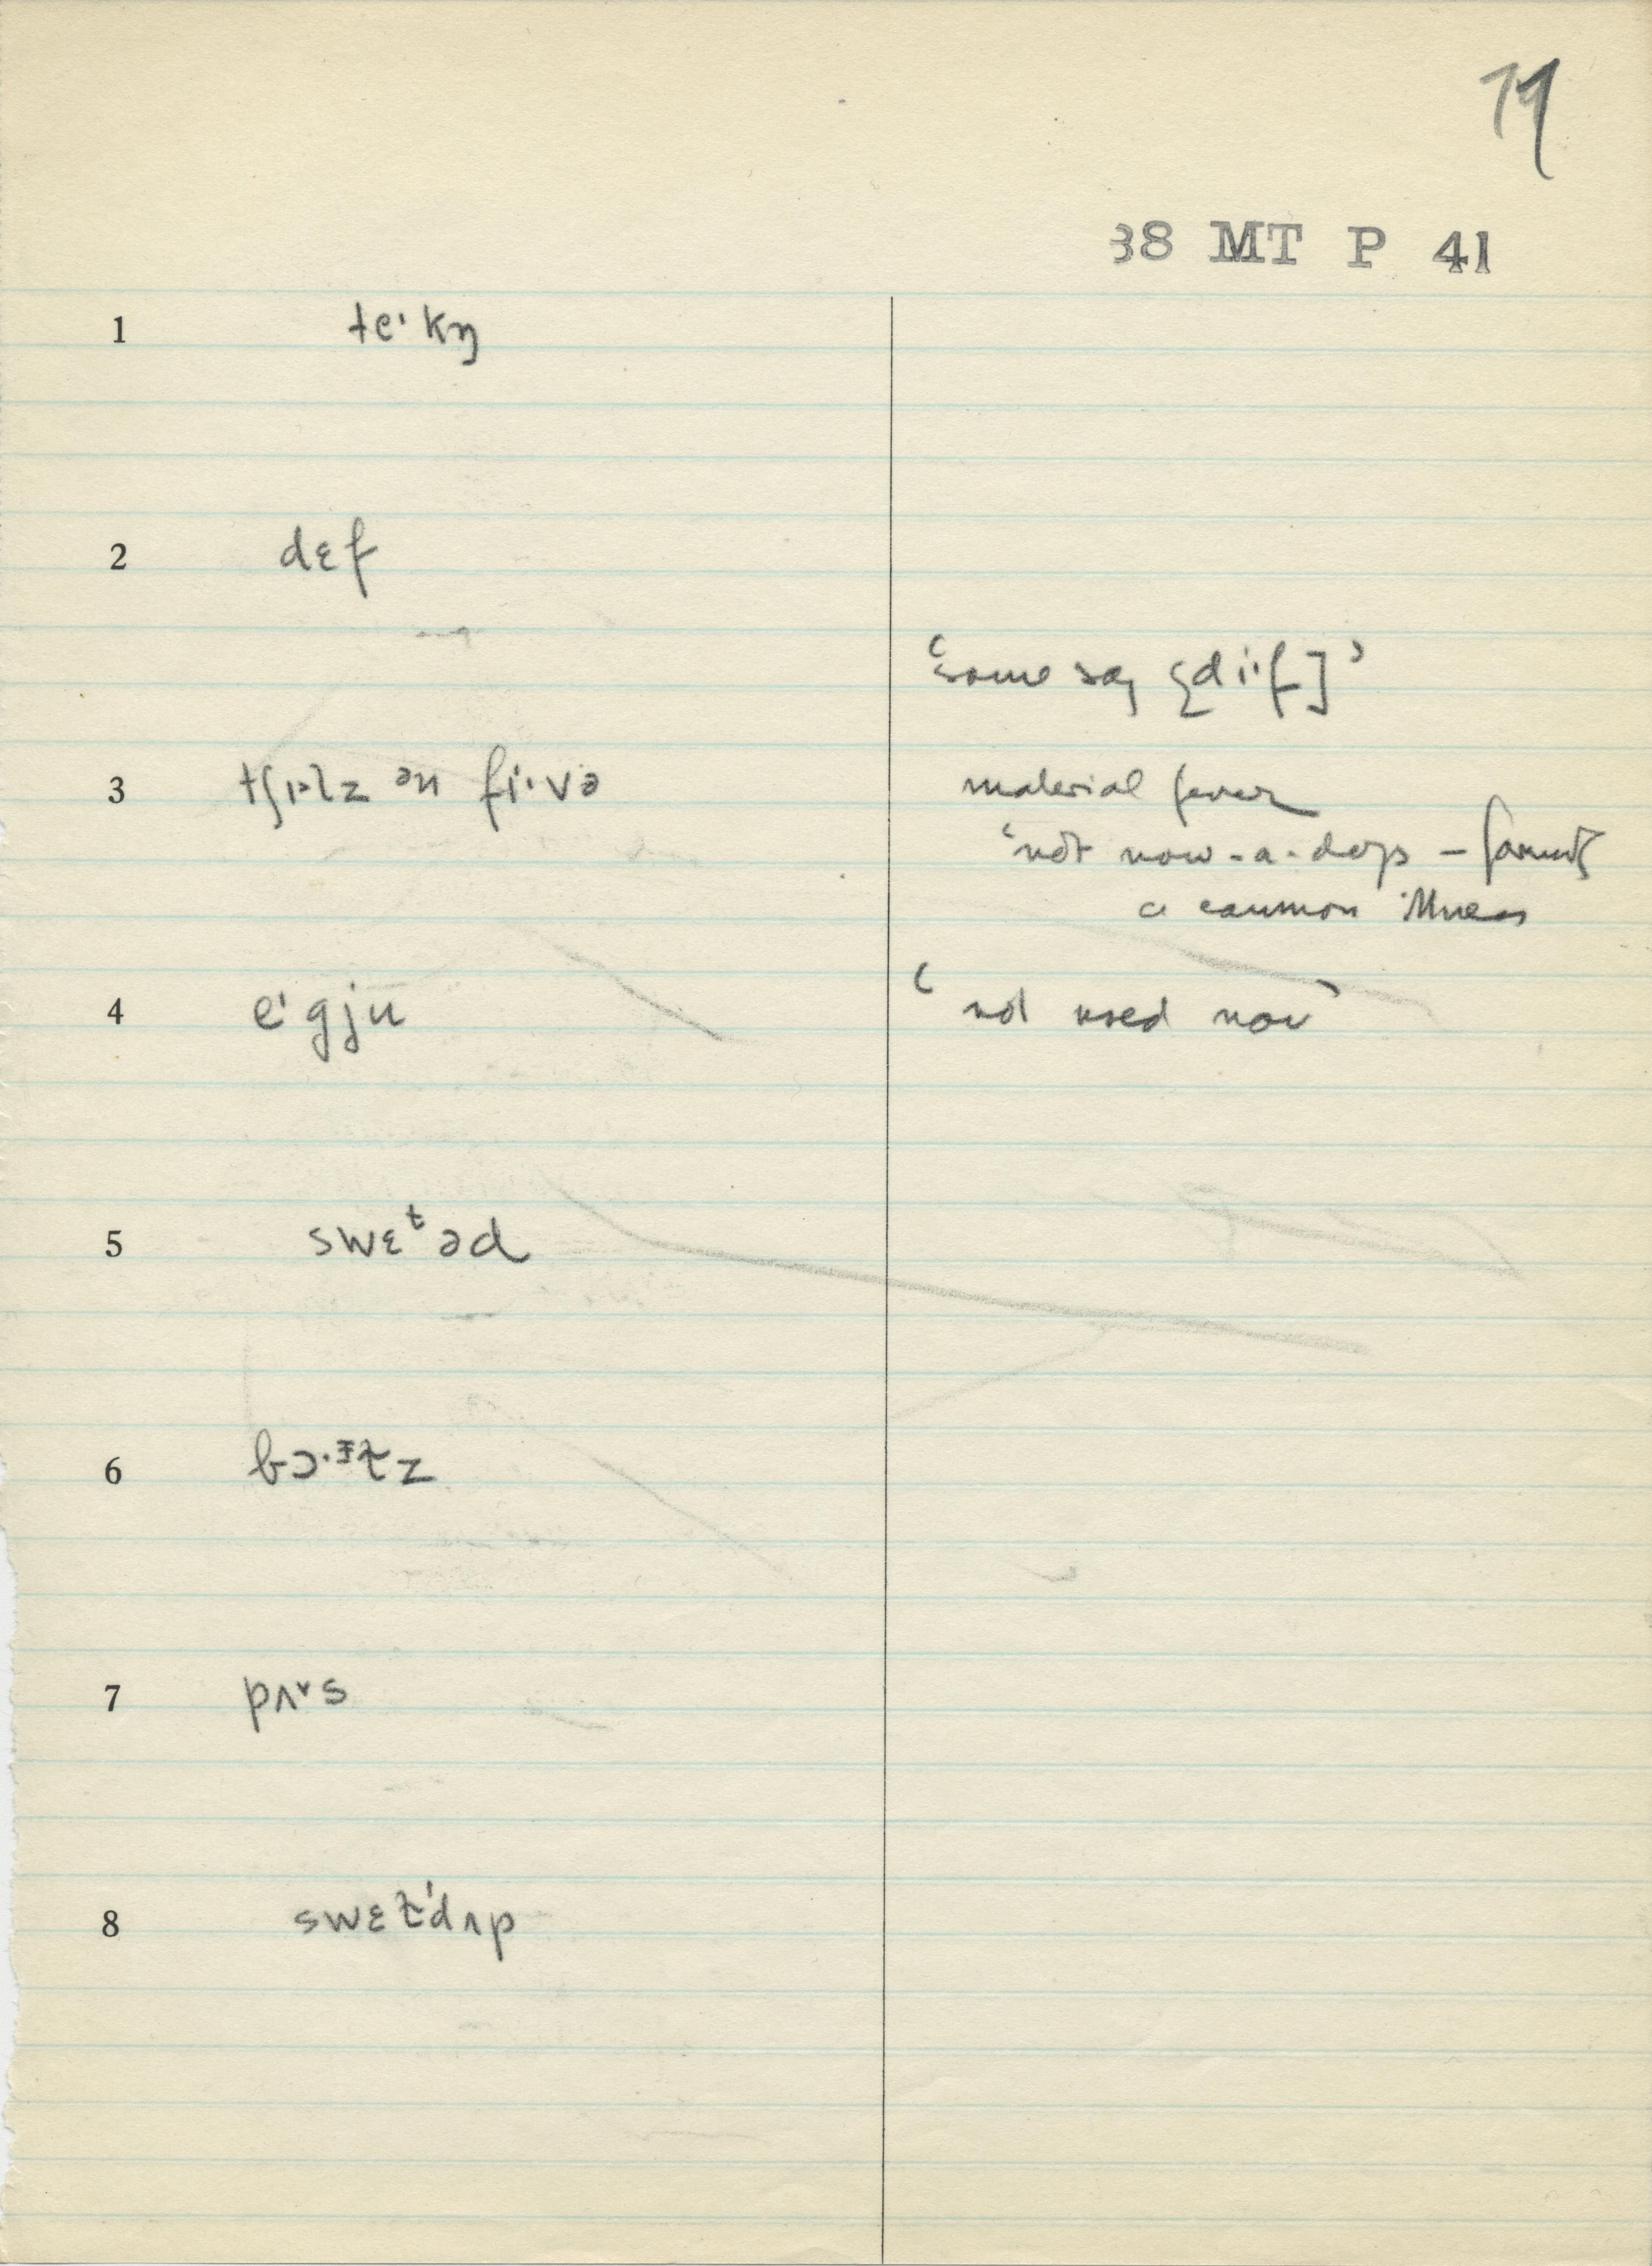 79
38 MT P 41
1 teˈkŋ
2 dɛf
'some say [diˑf]'
3 tʃɪˑlz ən fiˑvə
malarial fever
'not now-a-days – formerly
a common illness
4 eˈgju
'not used now'
5 swɛᵗəd
6
7 pʌˇs
8 swɛt'dʌp